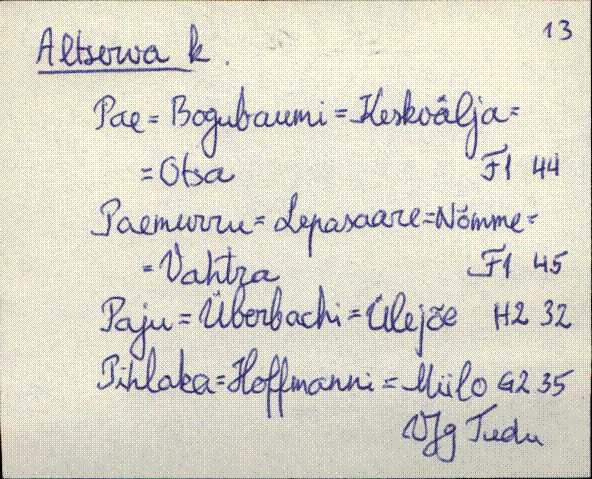 13
Altserva k.
Pae = Bogubaumi = Keskvälja =
= Otsa F1 44
Paemurru = Lepasaare = Nõmme =
= Vahtra F1 45
Paju = Überbachi = Ülejõe H2 32
Pihlaka = Hoffmanni = Miilo G2 35
VJg Tudu